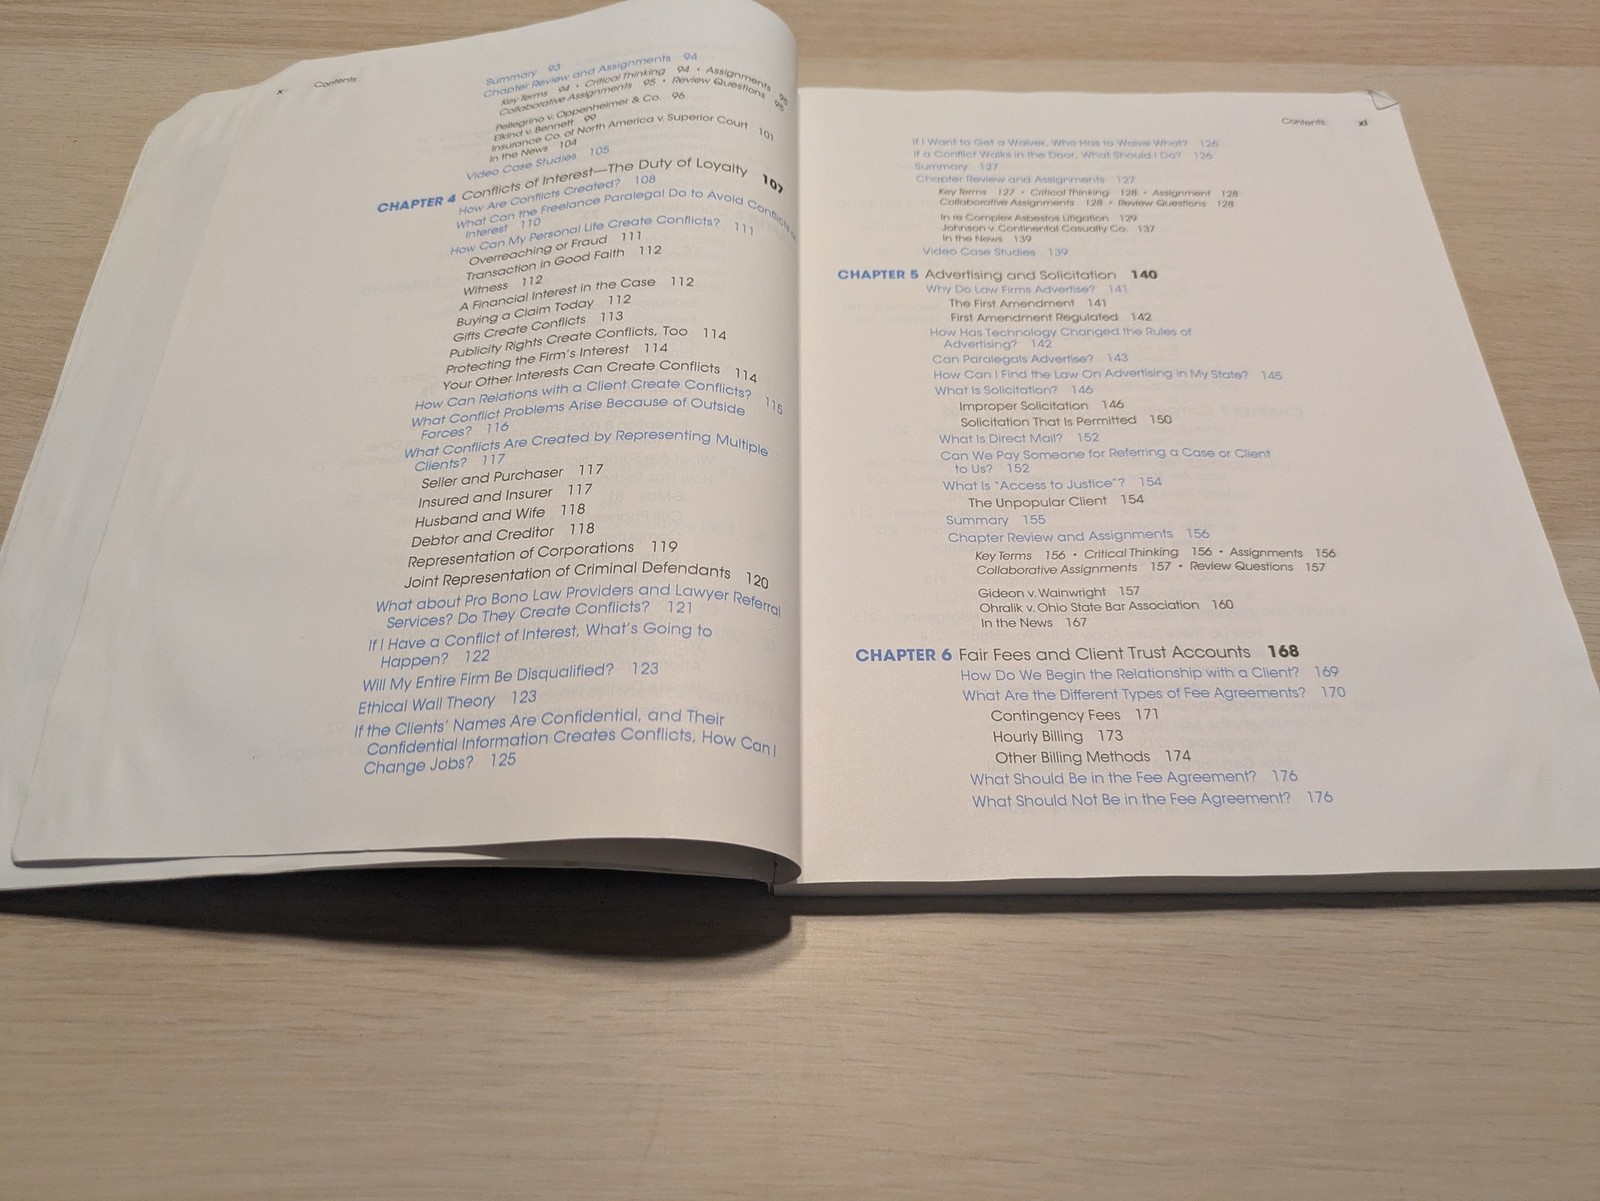 x Contents
Summary 93
Chapter Review and Assignments 94
Key Terms 94 • Critical Thinking 94 • Assignments 95
Collaborative Assignments 95 • Review Questions 95
Pellegrino v. Oppenheimer & Co. 96
Elkind v. Bennett 99
Insurance Co. of North America v. Superior Court 101
In the News 104
Video Case Studies 105
CHAPTER 4 Conflicts of Interest—The Duty of Loyalty 107
How Are Conflicts Created? 108
What Can the Freelance Paralegal Do to Avoid Conflicts of
Interest 110
How Can My Personal Life Create Conflicts? 111
Overreaching or Fraud 111
Transaction in Good Faith 112
Witness 112
A Financial Interest in the Case 112
Buying a Claim Today 112
Gifts Create Conflicts 113
Publicity Rights Create Conflicts, Too 114
Protecting the Firm's Interest 114
Your Other Interests Can Create Conflicts 114
How Can Relations with a Client Create Conflicts? 115
What Conflict Problems Arise Because of Outside
Forces? 116
What Conflicts Are Created by Representing Multiple
Clients? 117
Seller and Purchaser 117
Insured and Insurer 117
Husband and Wife 118
Debtor and Creditor 118
Representation of Corporations 119
Joint Representation of Criminal Defendants 120
What about Pro Bono Law Providers and Lawyer Referral
Services? Do They Create Conflicts? 121
If I Have a Conflict of Interest, What's Going to
Happen? 122
Will My Entire Firm Be Disqualified? 123
Ethical Wall Theory 123
If the Clients' Names Are Confidential, and Their
Confidential Information Creates Conflicts, How Can I
Change Jobs? 125
Contents xi
If I Want to Get a Waiver, Who Has to Waive What? 126
If a Conflict Walks in the Door, What Should I Do? 126
Summary 127
Chapter Review and Assignments 127
Key Terms 127 • Critical Thinking 128 • Assignment 128
Collaborative Assignments 128 • Review Questions 128
In re Complex Asbestos Litigation 129
Johnson v. Continental Casualty Co. 137
In the News 139
Video Case Studies 139
CHAPTER 5 Advertising and Solicitation 140
Why Do Law Firms Advertise? 141
The First Amendment 141
First Amendment Regulated 142
How Has Technology Changed the Rules of
Advertising? 142
Can Paralegals Advertise? 143
How Can I Find the Law On Advertising in My State? 145
What Is Solicitation? 146
Improper Solicitation 146
Solicitation That Is Permitted 150
What Is Direct Mail? 152
Can We Pay Someone for Referring a Case or Client
to Us? 152
What Is "Access to Justice"? 154
The Unpopular Client 154
Summary 155
Chapter Review and Assignments 156
Key Terms 156 • Critical Thinking 156 • Assignments 156
Collaborative Assignments 157 • Review Questions 157
Gideon v. Wainwright 157
Ohralik v. Ohio State Bar Association 160
In the News 167
CHAPTER 6 Fair Fees and Client Trust Accounts 168
How Do We Begin the Relationship with a Client? 169
What Are the Different Types of Fee Agreements? 170
Contingency Fees 171
Hourly Billing 173
Other Billing Methods 174
What Should Be in the Fee Agreement? 176
What Should Not Be in the Fee Agreement? 176